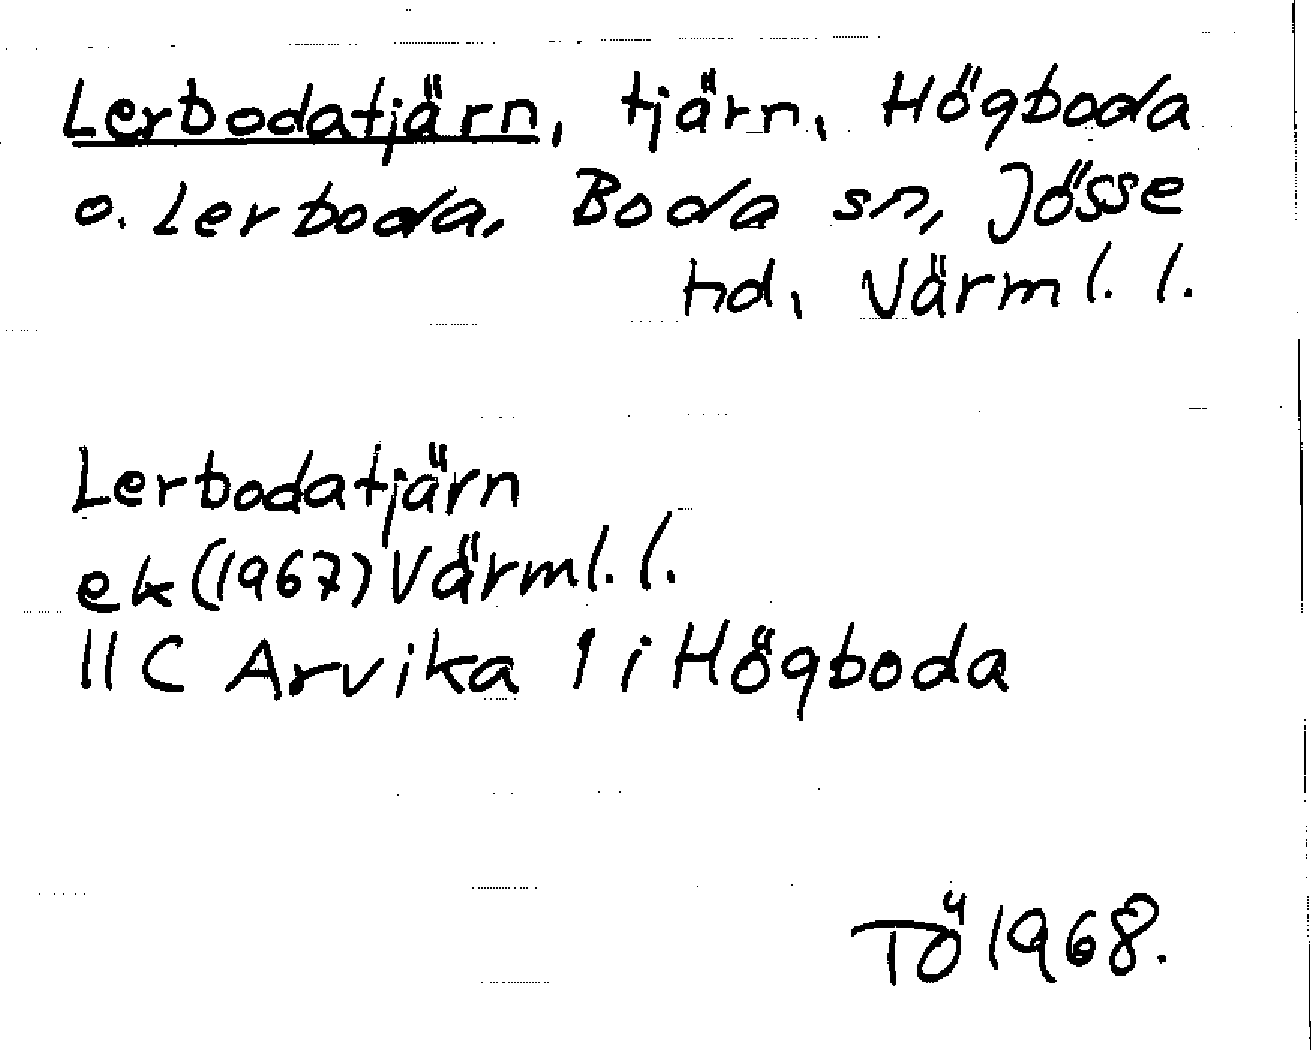 Lerbodatjärn, tjärn, Högboda
o. Lerboda, Boda sn, Jösse
hd, Värml. l.
Lerbodatjärn
ek (1967) Värml. l.
11 C Arvika 1 i Högboda
TÖ 1968.